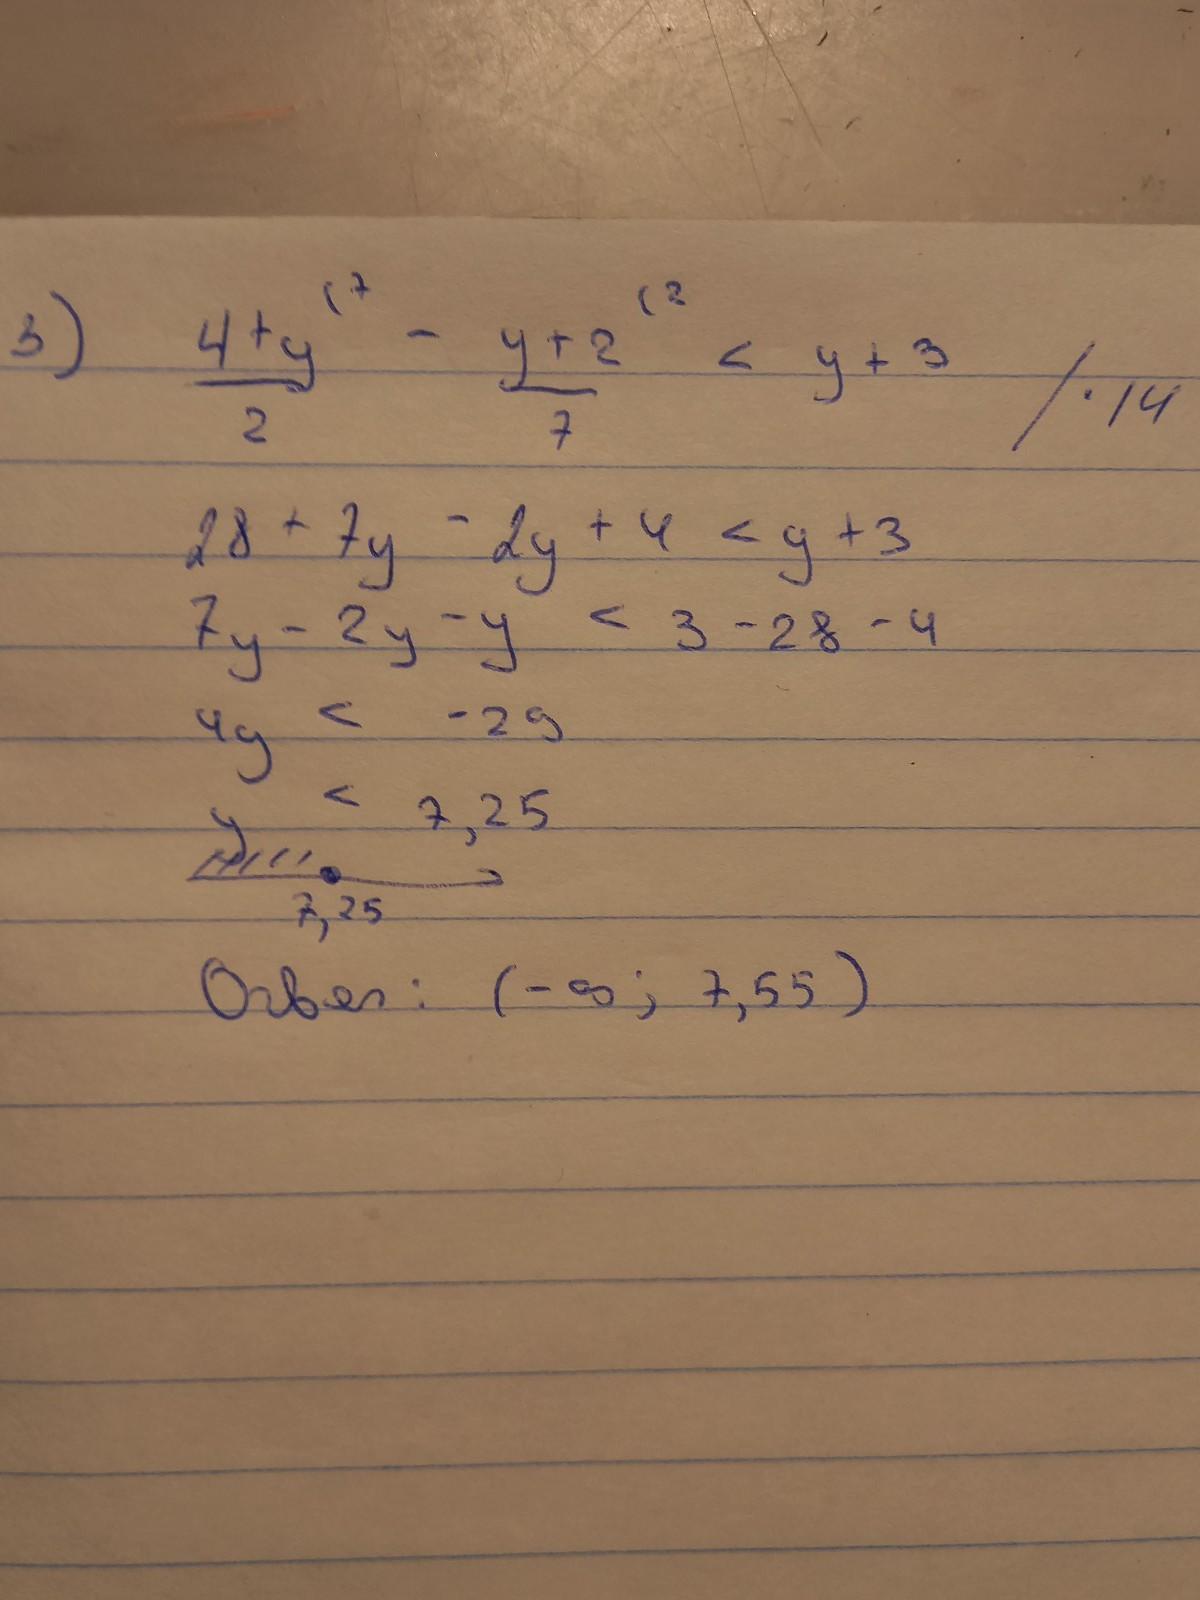 3) 4+y (7 - y+2 (2 < y+3 /·14
2 7
28 + 7y - 2y + 4 < y + 3
7y - 2y - y < 3 - 28 - 4
4y < -29
y < 7,25
7,25
Ответ: (-∞; 7,55)